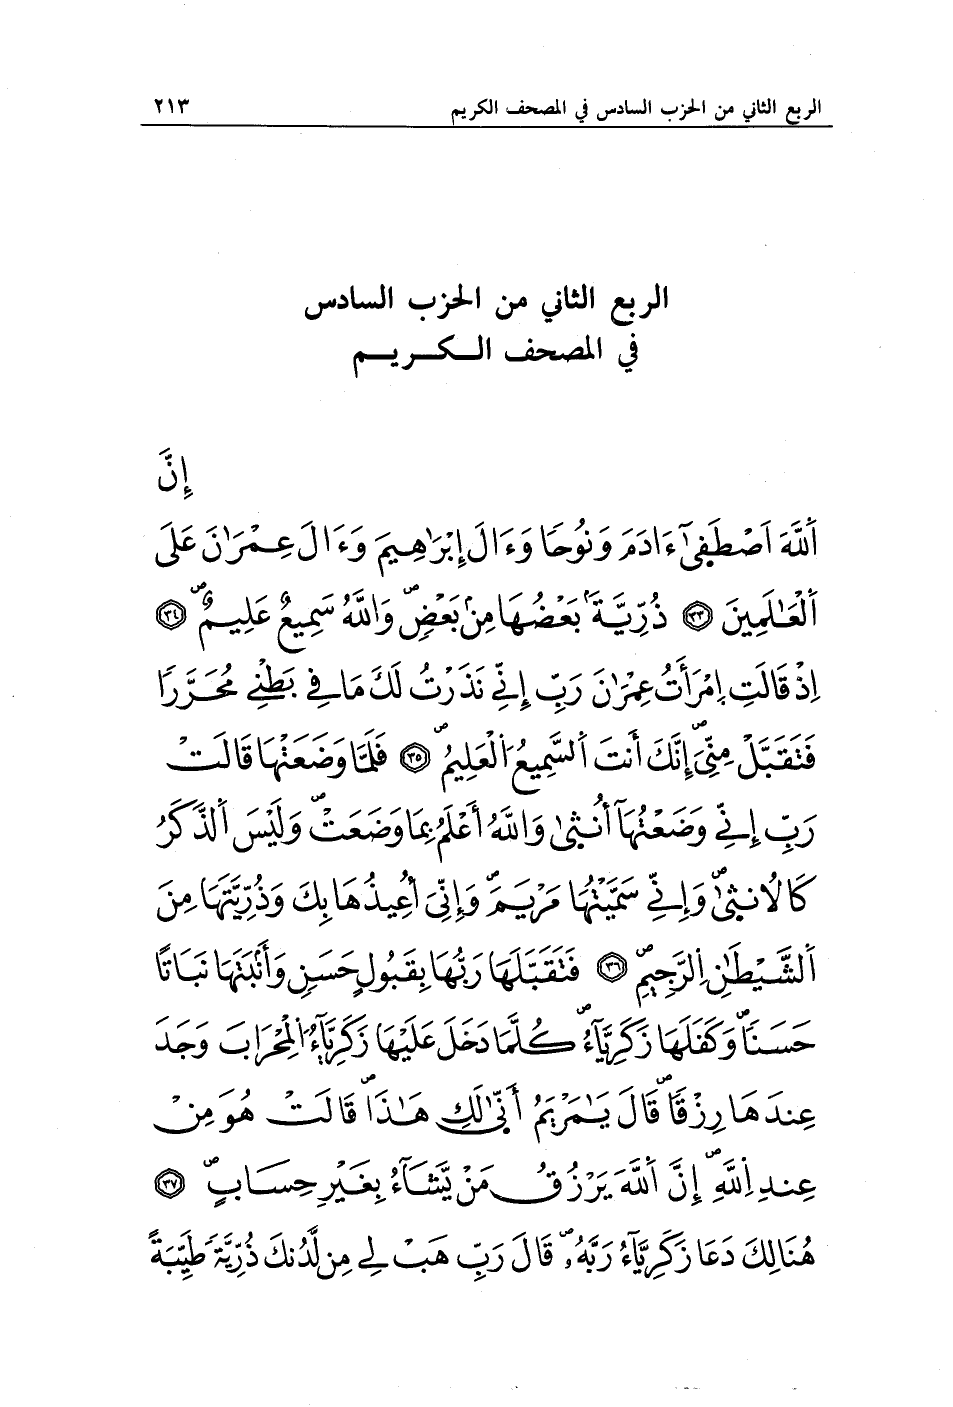 الربع الثاني من الحزب السادس في المصحف الكريم ٢١٣
الربع الثاني من الحزب السادس
في المصحف الكريم
إِنَّ
اَ۬للَّهَ اَصْطَف۪ىٰٓ ءَادَمَ وَنُوحًا وَءَالَ إِبْرَٰهِيمَ وَءَالَ عِمْرَٰنَ عَلَى
اَ۬لْعَٰلَمِينَ ٣٣ ذُرِّيَّةَۢ بَعْضُهَا مِنۢ بَعْضٖۖ وَاللَّهُ سَمِيعٌ عَلِيمٌۖ ٣٤
اِذْ قَالَتِ اِ۪مْرَأَتُ عِمْرَٰنَ رَبِّ إِنِّے نَذَرْتُ لَكَ مَا فِے بَطْنِے مُحَرَّرًا
فَتَقَبَّلْ مِنِّيَۖ إِنَّكَ أَنتَ اَ۬لسَّمِيعُ اُ۬لْعَلِيمُۖ ٣٥ فَلَمَّا وَضَعَتْهَا قَالَتْ
رَبِّ إِنِّے وَضَعْتُهَآ أُنث۪ىٰ وَاللَّهُ أَعْلَمُ بِمَا وَضَعَتْۖ وَلَيْسَ اَ۬لذَّكَرُ
كَالُانث۪ىٰۖ وَإِنِّے سَمَّيْتُهَا مَرْيَمَۖ وَإِنِّيَ أُعِيذُهَا بِكَ وَذُرِّيَّتَهَا مِنَ
اَ۬لشَّيْطَٰنِ اِ۬لرَّجِيمِۖ ٣٦ فَتَقَبَّلَهَا رَبُّهَا بِقَبُولٍ حَسَنٖ وَأَنۢبَتَهَا نَبَاتًا
حَسَنٗاۖ وَكَفَلَهَا زَكَرِيَّآءُۖ كُلَّمَا دَخَلَ عَلَيْهَا زَكَرِيَّآءُ اُ۬لْمِحْرَابَ وَجَدَ
عِندَهَا رِزْقٗاۖ قَالَ يَٰمَرْيَمُ أَنّ۪ىٰ لَكِ هَٰذَاۖ قَالَتْ هُوَ مِنْ
عِندِ اِ۬للَّهِۖ إِنَّ اَ۬للَّهَ يَرْزُقُ مَنْ يَّشَآءُ بِغَيْرِ حِسَابٍۖ ٣٧
هُنَالِكَ دَعَا زَكَرِيَّآءُ رَبَّهُۥۖ قَالَ رَبِّ هَبْ لِے مِن لَّدُنكَ ذُرِّيَّةٗ طَيِّبَةً